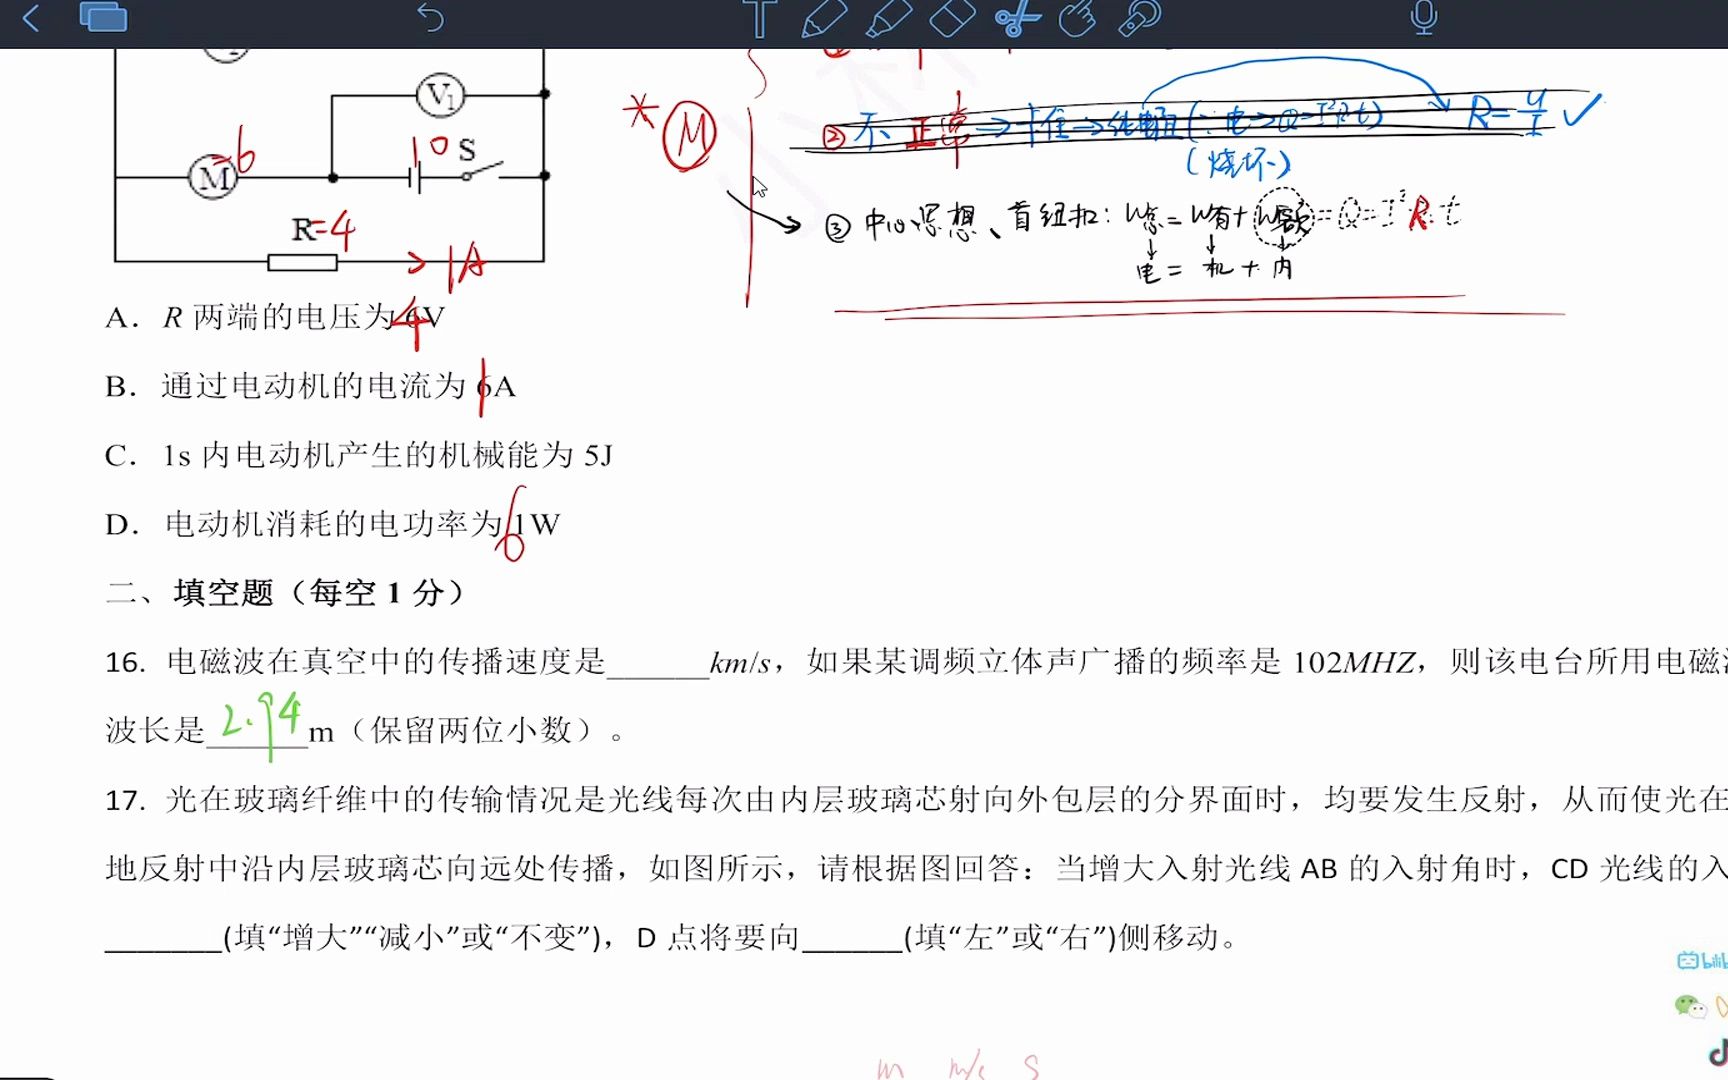 V₁
② 不正常→卡住→纯电阻(∵电→Q=I²Rt) R=U/I ✓
(烧坏)
* M
10 S
M=6
③ 中心思想、首纽扣：W总=W有+W额=Q=I²Rt
R=4
电=机+内
1A
A．R 两端的电压为 6V 4
B．通过电动机的电流为 6A 1
C．1s 内电动机产生的机械能为 5J
D．电动机消耗的电功率为 1W 6
二、填空题（每空 1 分）
16. 电磁波在真空中的传播速度是______km/s，如果某调频立体声广播的频率是 102MHZ，则该电台所用电磁
波长是 2.94 m（保留两位小数）。
17. 光在玻璃纤维中的传输情况是光线每次由内层玻璃芯射向外包层的分界面时，均要发生反射，从而使光在
地反射中沿内层玻璃芯向远处传播，如图所示，请根据图回答：当增大入射光线 AB 的入射角时，CD 光线的入
_______(填“增大”“减小”或“不变”)，D 点将要向______(填“左”或“右”)侧移动。
m m/s s